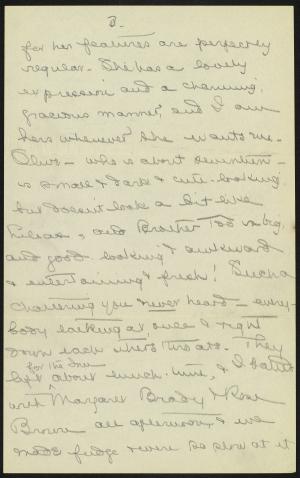 3.
for her features are perfectly
regular. She has a lovely
expression and a charming,
gracious manner, and I am
hers whenever she wants me.
Olive - who is about seventeen -
is small & dark & cute-looking,
but doesn't look a bit like
Lilian, and Brother is big
and good-looking & awkward
& entertaining & fresh! Such a
chattering you never heard - every-
body talking at once & right
down each other's throats. They
left for the Inn about lunch-time, & I
with Margaret Brady & Rose
Brown all afternoon, & we
made fudge & were so slow at it